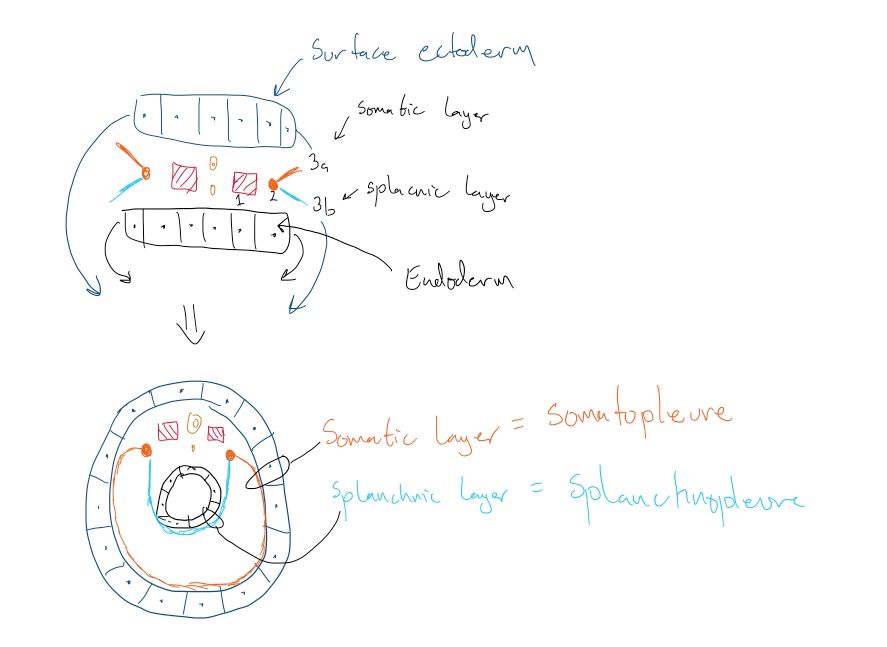 Surface ectoderm
somatic layer
3a
splacnic layer
1 2
3b
Endoderm
Somatic layer = somatopleure
splanchnic layer = splanchnopleure